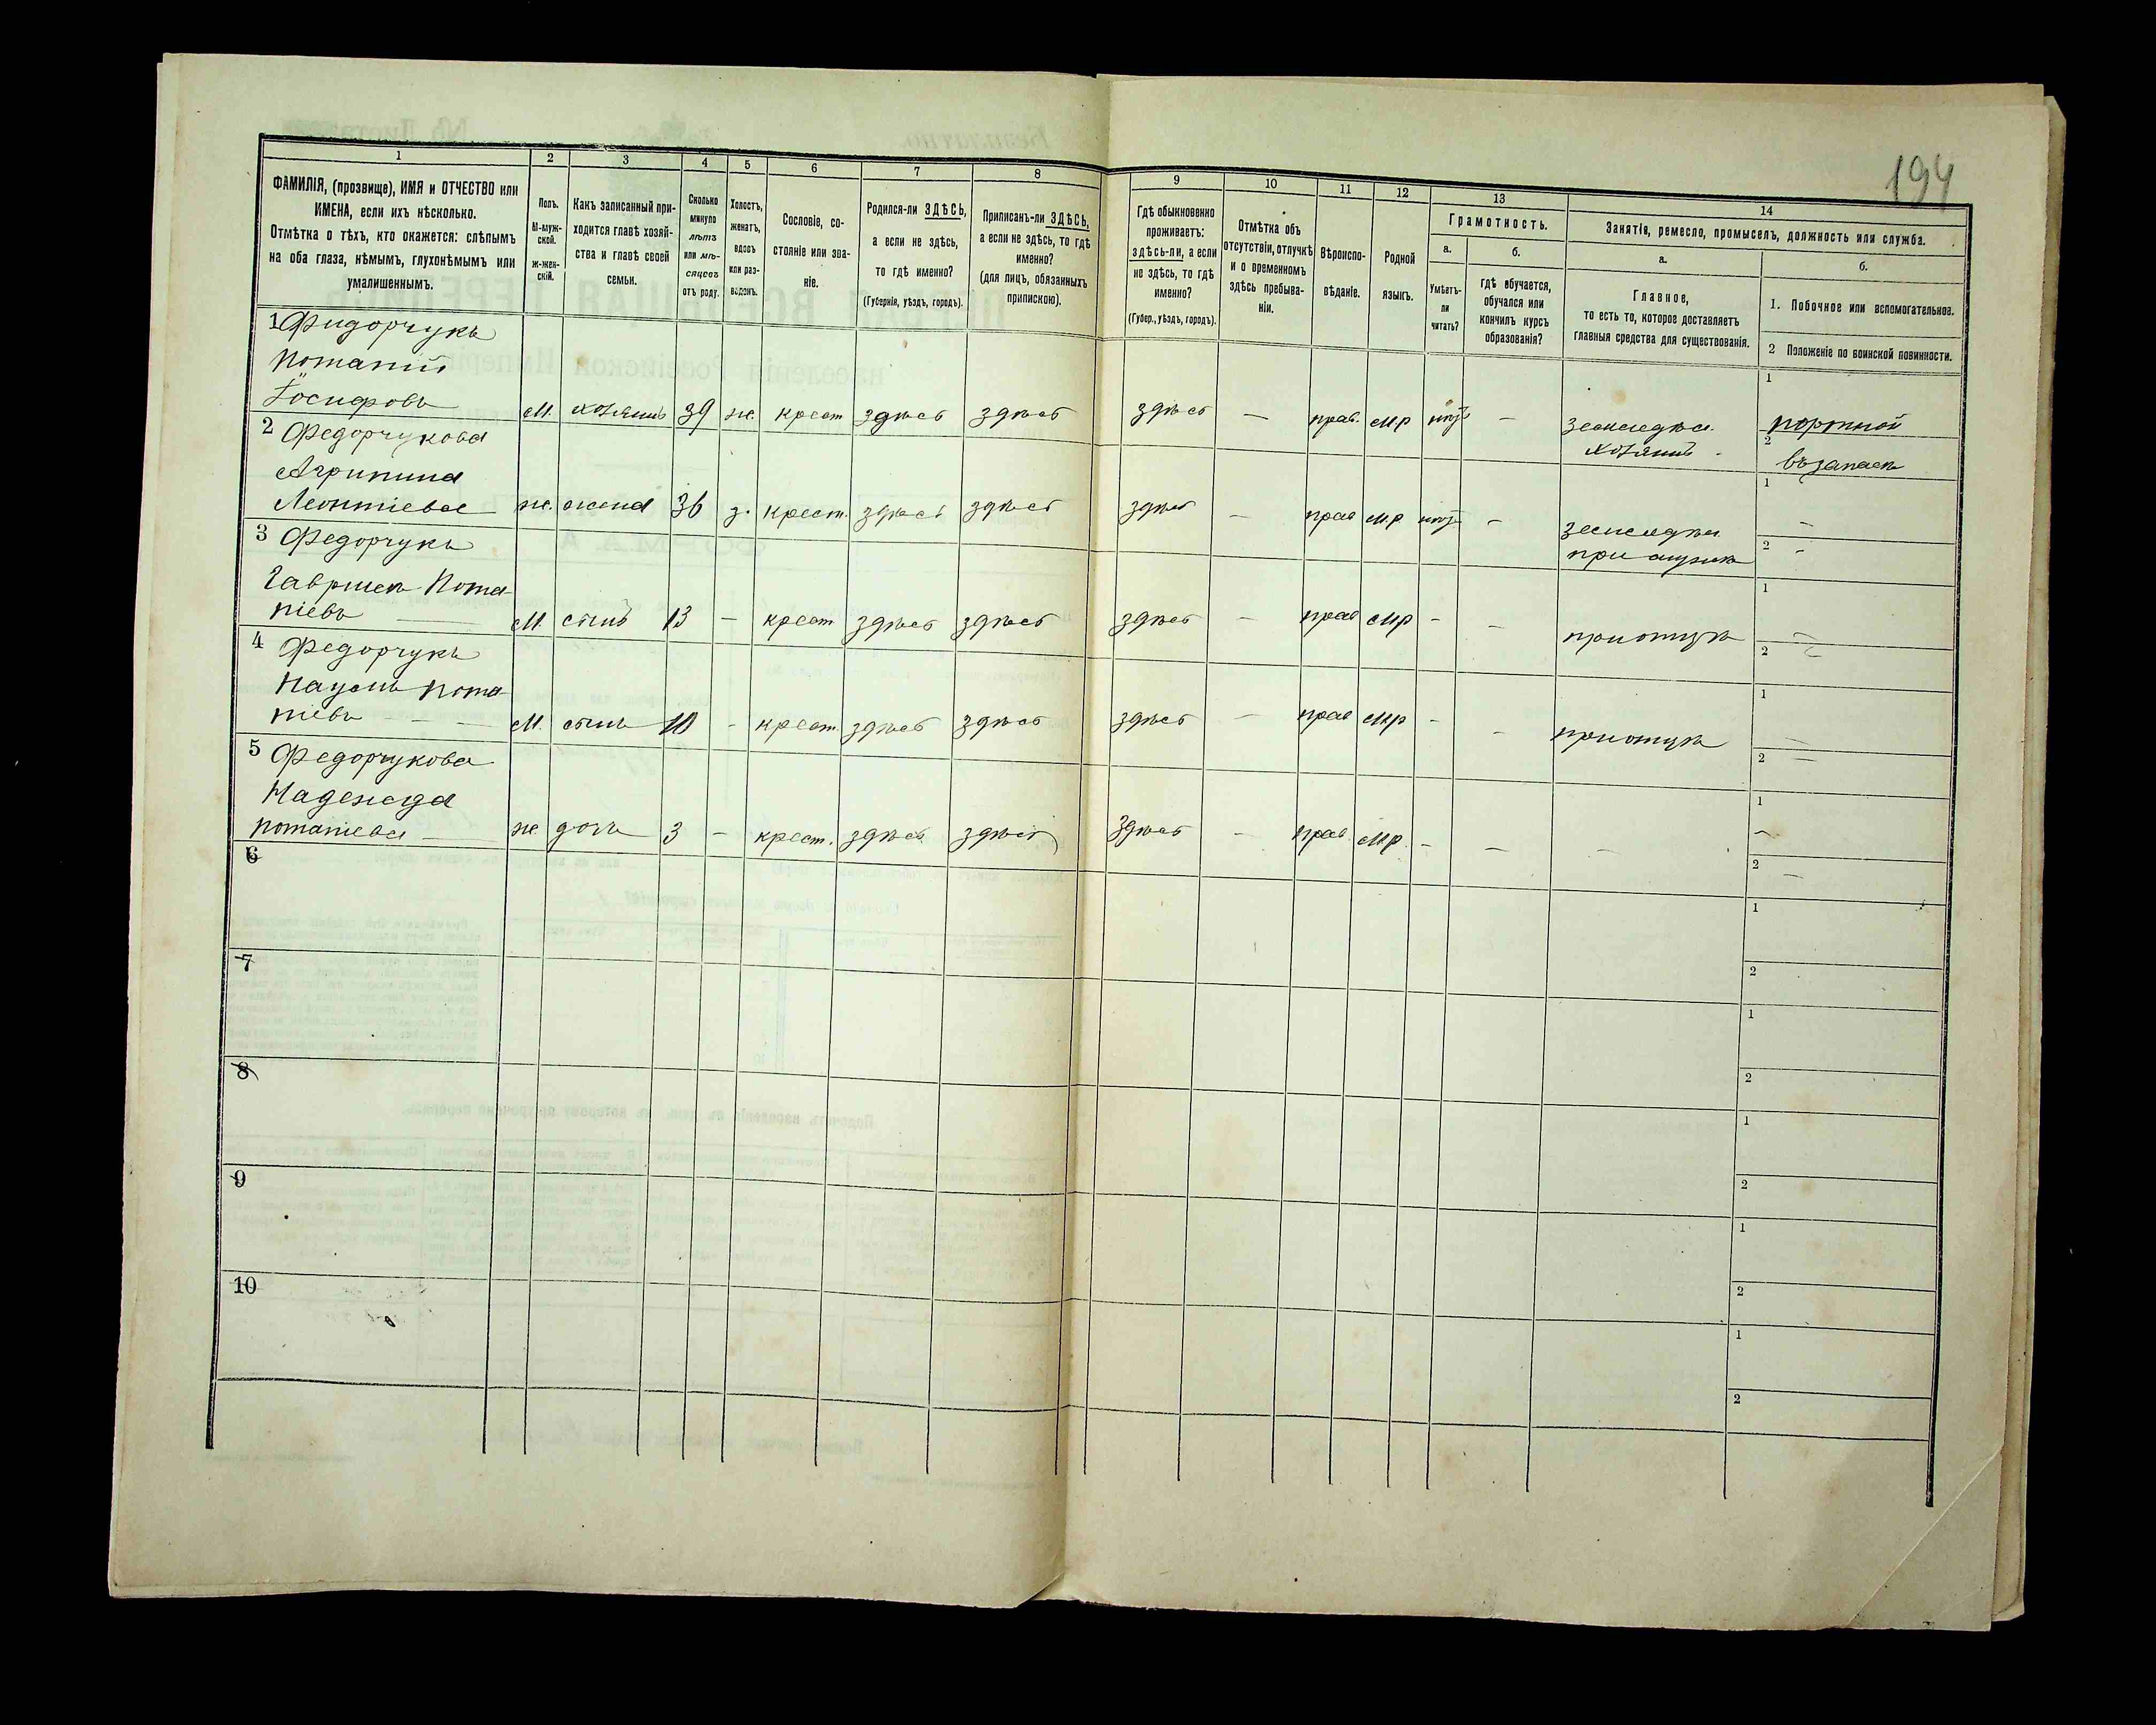 194
1 2 3 4 5 6 7 8 9 10 11 12 13 14
ФАМИЛІЯ, (прозвище), ИМЯ и ОТЧЕСТВО или
ИМЕНА, если ихъ нѣсколько.
Отмѣтка о тѣхъ, кто окажется: слѣпымъ
на оба глаза, нѣмымъ, глухонѣмымъ или
умалишеннымъ.
Полъ.
М-муж-
ской.
Ж-жен-
скій.
Какъ записанный при-
ходится главѣ хозяй-
ства и главѣ своей
семьи.
Сколько
минуло
лѣтъ
или мѣ-
сяцевъ
отъ роду.
Холостъ,
женатъ,
вдовъ
или раз-
веденъ.
Сословіе, со-
стояніе или зва-
ніе.
Родился-ли ЗДѢСЬ,
а если не здѣсь,
то гдѣ именно?
(Губернія, уѣздъ, городъ).
Приписанъ-ли ЗДѢСЬ,
а если не здѣсь, то гдѣ
именно?
(для лицъ, обязанныхъ
припискою).
Гдѣ обыкновенно
проживаетъ:
здѣсь-ли, а если
не здѣсь, то гдѣ
именно?
(Губер., уѣздъ, городъ).
Отмѣтка объ
отсутствіи, отлучкѣ
и о временномъ
здѣсь пребыва-
ніи.
Вѣроиспо-
вѣданіе.
Родной
языкъ.
Грамотность.
а.
Умѣетъ-
ли
читать?
б.
гдѣ обучается,
обучался или
кончилъ курсъ
образованія?
Занятіе, ремесло, промыселъ, должность или служба.
а.
Главное,
то есть то, которое доставляетъ
главныя средства для существованія.
б.
1. Побочное или вспомогательное.
2 Положеніе по воинской повинности.
1 Фидорчукъ
Потапій
Іосифовъ М. хозяинъ 39 ж. крест здѣсь здѣсь здѣсь — прав. мр — 1 портной
хозяинъ 2 въ запасѣ
2 Федорчукова
Агрипина
Леонтіева ж. жена 36 з. крест. здѣсь здѣсь здѣсь — прав мр — 1 —
при мужѣ 2 -
3 Федорчукъ
Гавріилъ Пота-
піевъ — М. сынъ 13 — крест здѣсь здѣсь здѣсь — прав мр - - при отцѣ 1 — 2 —
4 Федорчукъ
Пота-
піевъ — — М. сынъ 10 - крест. здѣсь здѣсь здѣсь — прав мр - - при отцѣ 1 — 2 —
5 Федорчукова
Надежда
Потапіева — ж. дочь 3 — крест. здѣсь здѣсь здѣсь — прав. мр. - — — 1 — 2 —
6 1 2
7 1 2
8 1 2
9 1 2
10 1 2